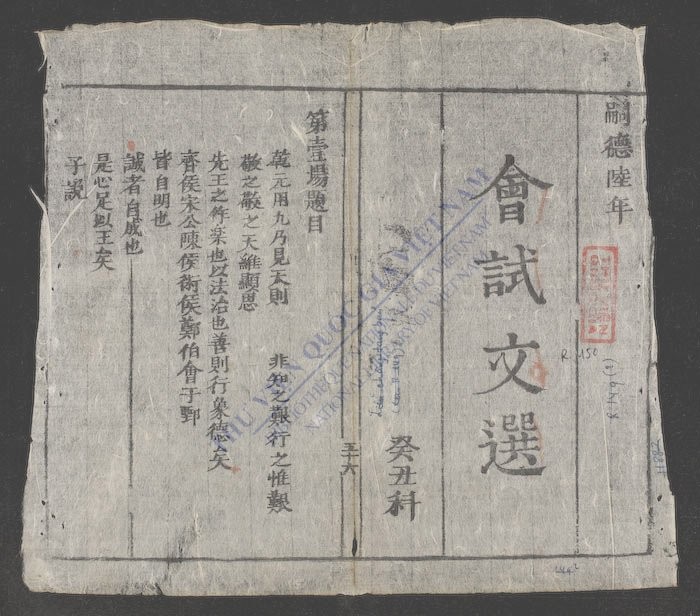 嗣德陸年
會試文選
癸丑科
五十六
第壹場題目
乾元用九乃見天則　非知之艱行之惟艱
敬之敬之天維顯思
先王之作樂也以法治也善則行象德矣
齊侯宋公陳侯衛侯鄭伯會于鄄
皆自明也
誠者自成也
是心足以王矣
予說
THƯ VIỆN QUỐC GIA VIỆT NAM
BIBLIOTHÈQUE NATIONALE DU VIETNAM
NATIONAL LIBRARY OF VIETNAM